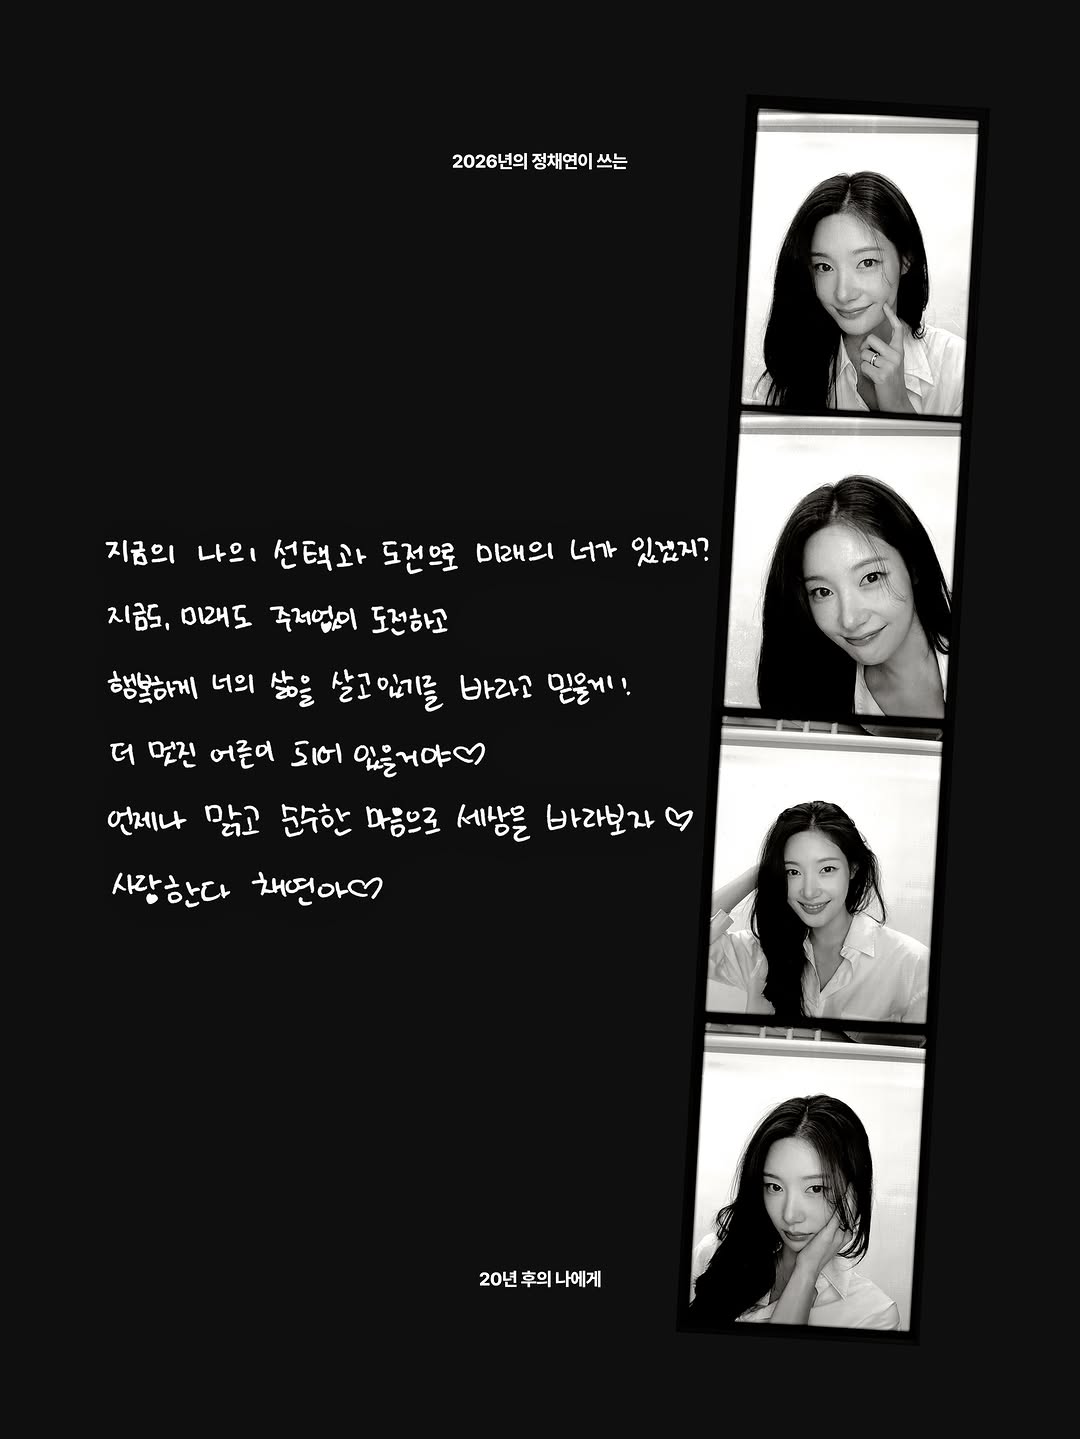 2026년의 정채연이 쓰는
지금의 나의 선택과 도전으로 미래의 너가 있겠지?
지금도, 미래도 주저없이 도전하고
행복하게 너의 삶을 살고있기를 바라고 믿을게!
더 멋진 어른이 되어 있을거야♡
언제나 맑고 순수한 마음으로 세상을 바라보자 ♡
사랑한다 채연아♡
20년 후의 나에게